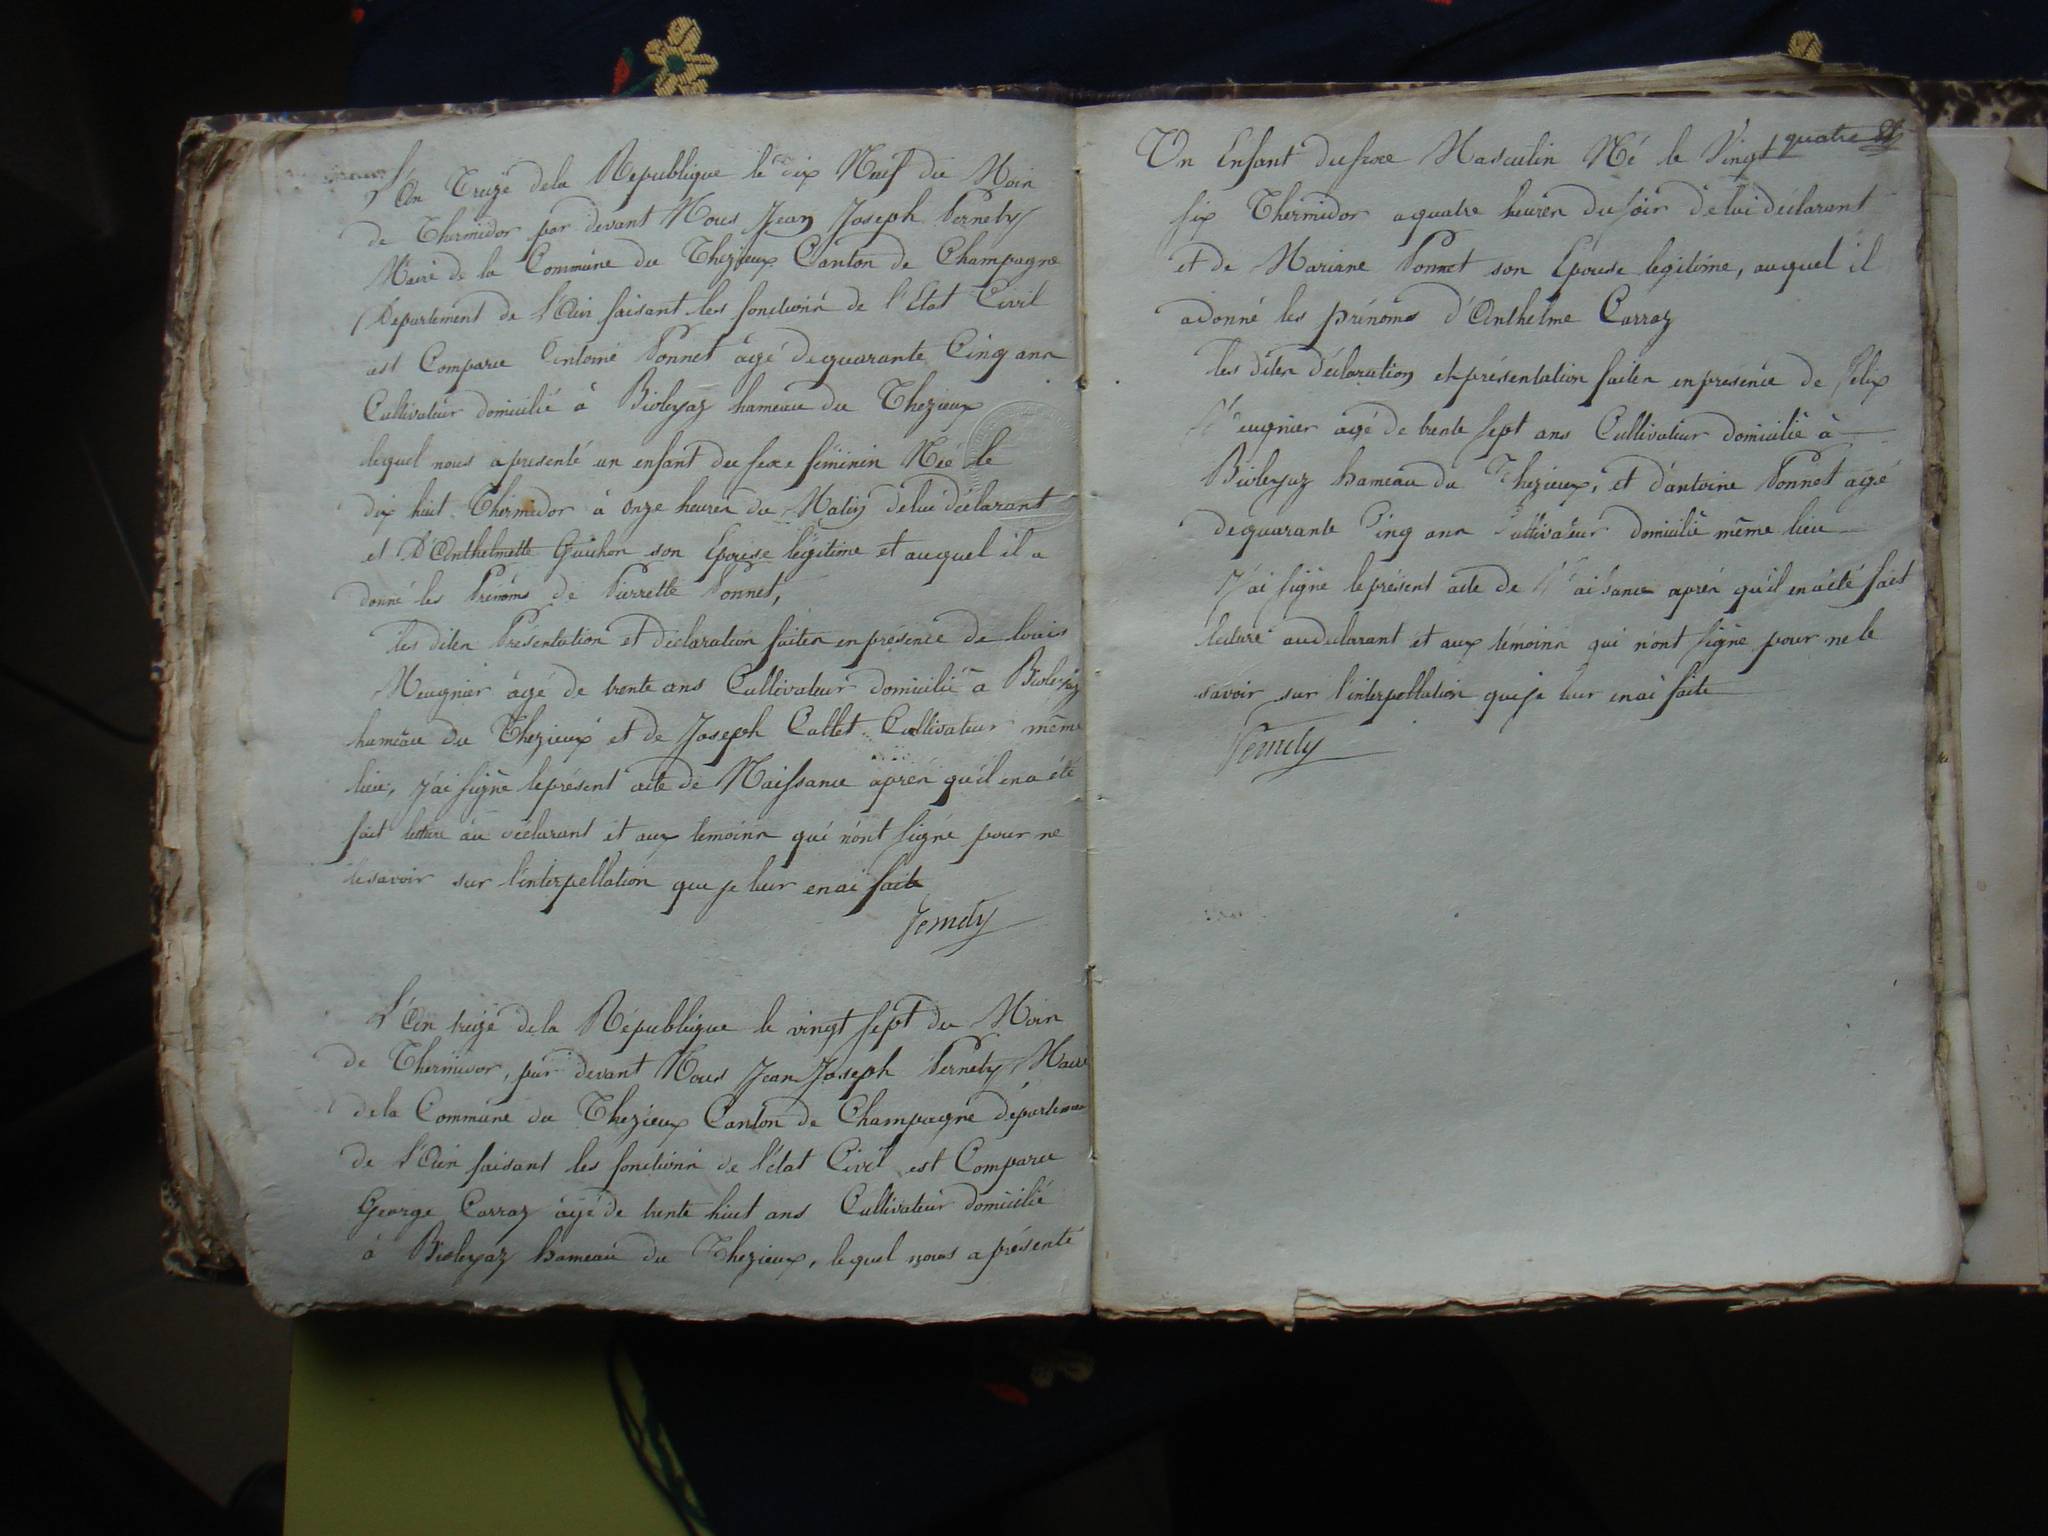 L'An Treize de la Republique le dix Neuf du Mois
de Thermidor par devant Nous Jean Joseph Pernety
Maire de la Commune du Thezieux Canton de Champagne
Departement de l'Ain faisant les fonctions de l'Etat Civil
est Comparu Antoine Ponnet agé de quarante Cinq ans
Cultivateur domicilié à Bioleyaz hameau du Thezieux
lequel nous a presenté un enfant du sexe féminin Née le
dix huit Thermidor à onze heures du Matin de lui déclarant
et D'Anthelmette Guichon son Epouse légitime et auquel il a
donné les Prénoms de Pierrette Ponnet,
les dites Présentation et déclaration faites en présence de louis
Meugnier agé de trente ans Cultivateur domicilié a Bioleyaz
hameau du Thezieux et de Joseph Callet Cultivateur même
lieu, J'ai signé le présent acte de Naissance après qu'il en a été
fait lecture au déclarant et aux temoins qui n'ont signé pour ne
le savoir sur l'interpellation que je leur en ai faite
Pernety
L'An treize de la République le vingt sept du Mois
de Thermidor, par devant Nous Jean Joseph Pernety Maire
de la Commune du Thezieux Canton de Champagne département
de l'Ain faisant les fonctions de l'état Civil est Comparu
George Carraz agé de trente huit ans Cultivateur domicilié
à Bioleyaz hameau du Thezieux, lequel nous a présenté
quatre
Un Enfant du sexe Masculin Né le Vingt
six Thermidor a quatre heures du soir de lui déclarant
et de Mariane Ponnet son Epouse legitime, auquel il
a donné les prénoms d'Anthelme Carraz
les dites déclaration et présentation faites en présence de Felix
Meugnier agé de trente sept ans Cultivateur domicilié à
Bioleyaz hameau du Thezieux, et d'antoine Ponnet agé
de quarante Cinq ans Cultivateur domicilié même lieu
J'ai signé le présent acte de Naisance après qu'il en a été fait
lecture au declarant et aux témoins qui n'ont signé pour ne le
savoir sur l'interpellation que je leur en ai faite
Pernety